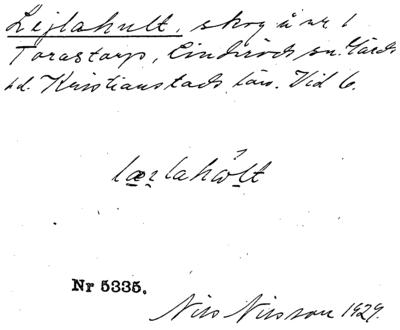 Lejlahult, skog å nr 1
Torastorp, Linderöds sn. Gärds
hd. Kristianstads län. Vid 6.
Nr 5335.
Nils Nilsson 1929.